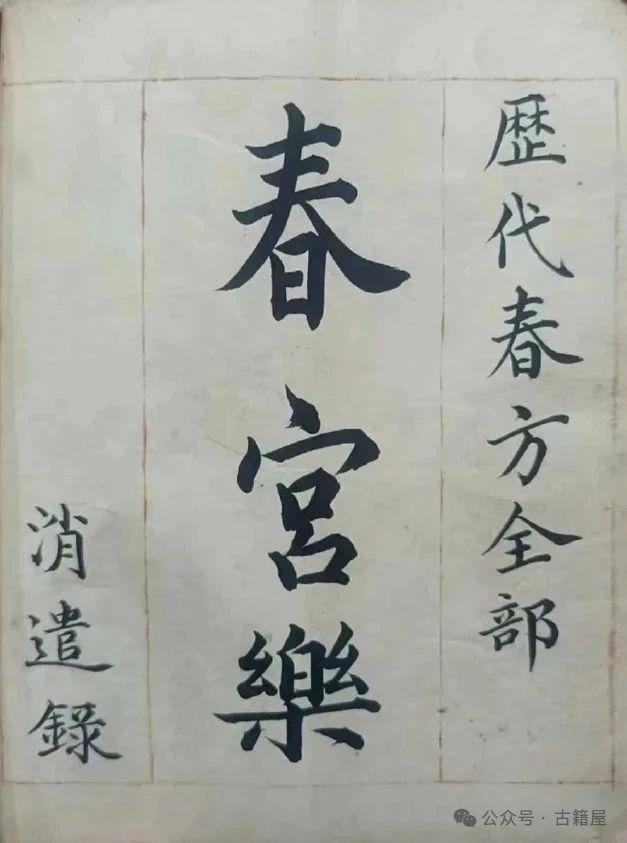 歷代春方全部
春宮樂
消遣錄
公众号·古籍屋